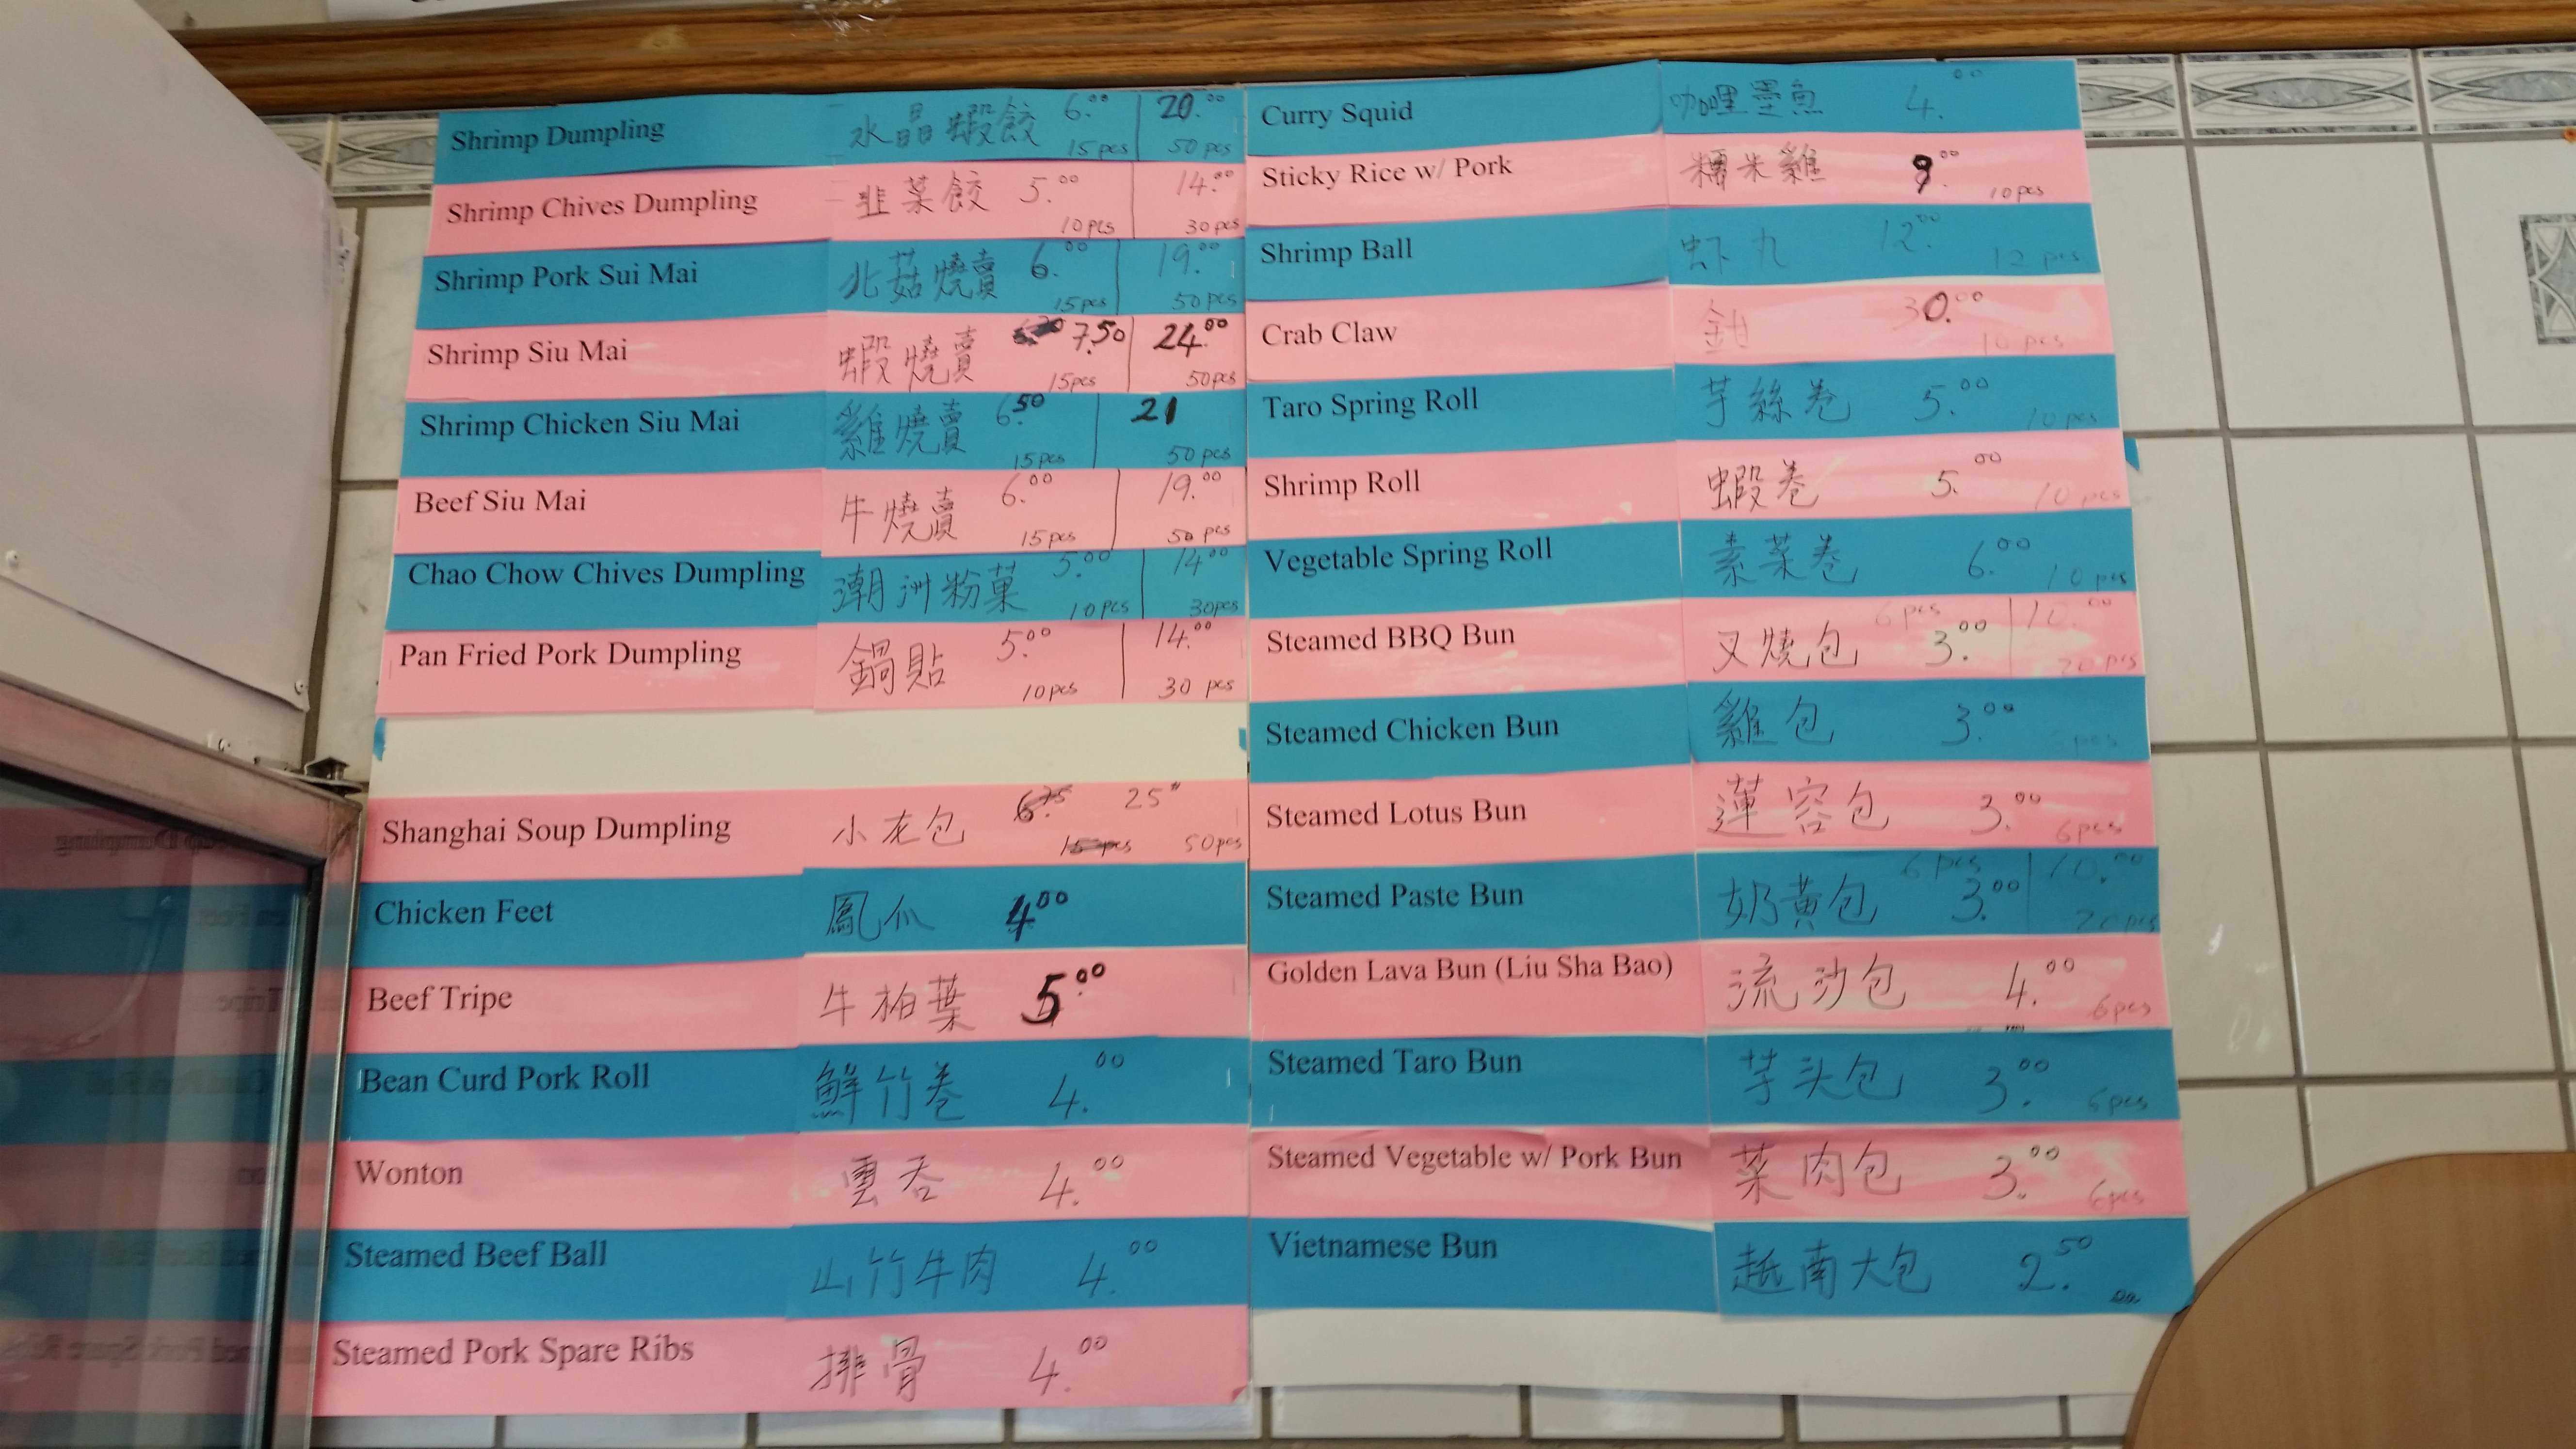 Shrimp Dumpling 水晶蝦餃 6.00 15pcs 20.00 50pcs
Shrimp Chives Dumpling 韭菜餃 5.00 10pcs 14.00 30pcs
Shrimp Pork Sui Mai 北菇燒賣 6.00 15pcs 19.00 50pcs
Shrimp Siu Mai 蝦燒賣 7.50 15pcs 24.00 50pcs
Shrimp Chicken Siu Mai 雞燒賣 6.50 15pcs 21 50pcs
Beef Siu Mai 牛燒賣 6.00 15pcs 19.00 50pcs
Chao Chow Chives Dumpling 潮洲粉菓 5.00 10pcs 14.00 30pcs
Pan Fried Pork Dumpling 鍋貼 5.00 10pcs 14.00 30 pcs
Shanghai Soup Dumpling 小龙包 6.75 15pcs 25 50pcs
Chicken Feet 鳳爪 4.00
Beef Tripe 牛柏葉 5.00
Bean Curd Pork Roll 鮮竹卷 4.00
Wonton 雲吞 4.00
Steamed Beef Ball 山竹牛肉 4.00
Steamed Pork Spare Ribs 排骨 4.00
Curry Squid 咖哩墨魚 4.00
Sticky Rice w/ Pork 糯米雞 9.00 10pcs
Shrimp Ball 虾丸 12.00 12 pcs
Crab Claw 30.00 10 pcs
Taro Spring Roll 芋絲卷 5.00 10 pcs
Shrimp Roll 蝦卷 5.00 10 pcs
Vegetable Spring Roll 素菜卷 6.00 10 pcs
Steamed BBQ Bun 叉燒包 6 pcs 3.00 10.00 20 pcs
Steamed Chicken Bun 雞包 3.00 pcs
Steamed Lotus Bun 蓮容包 3.00 6pcs
Steamed Paste Bun 奶黃包 6 pcs 3.00 10.00 20 pcs
Golden Lava Bun (Liu Sha Bao) 流沙包 4.00 6pcs
Steamed Taro Bun 芋头包 3.00 6pcs
Steamed Vegetable w/ Pork Bun 菜肉包 3.00 6pcs
Vietnamese Bun 越南大包 2.50